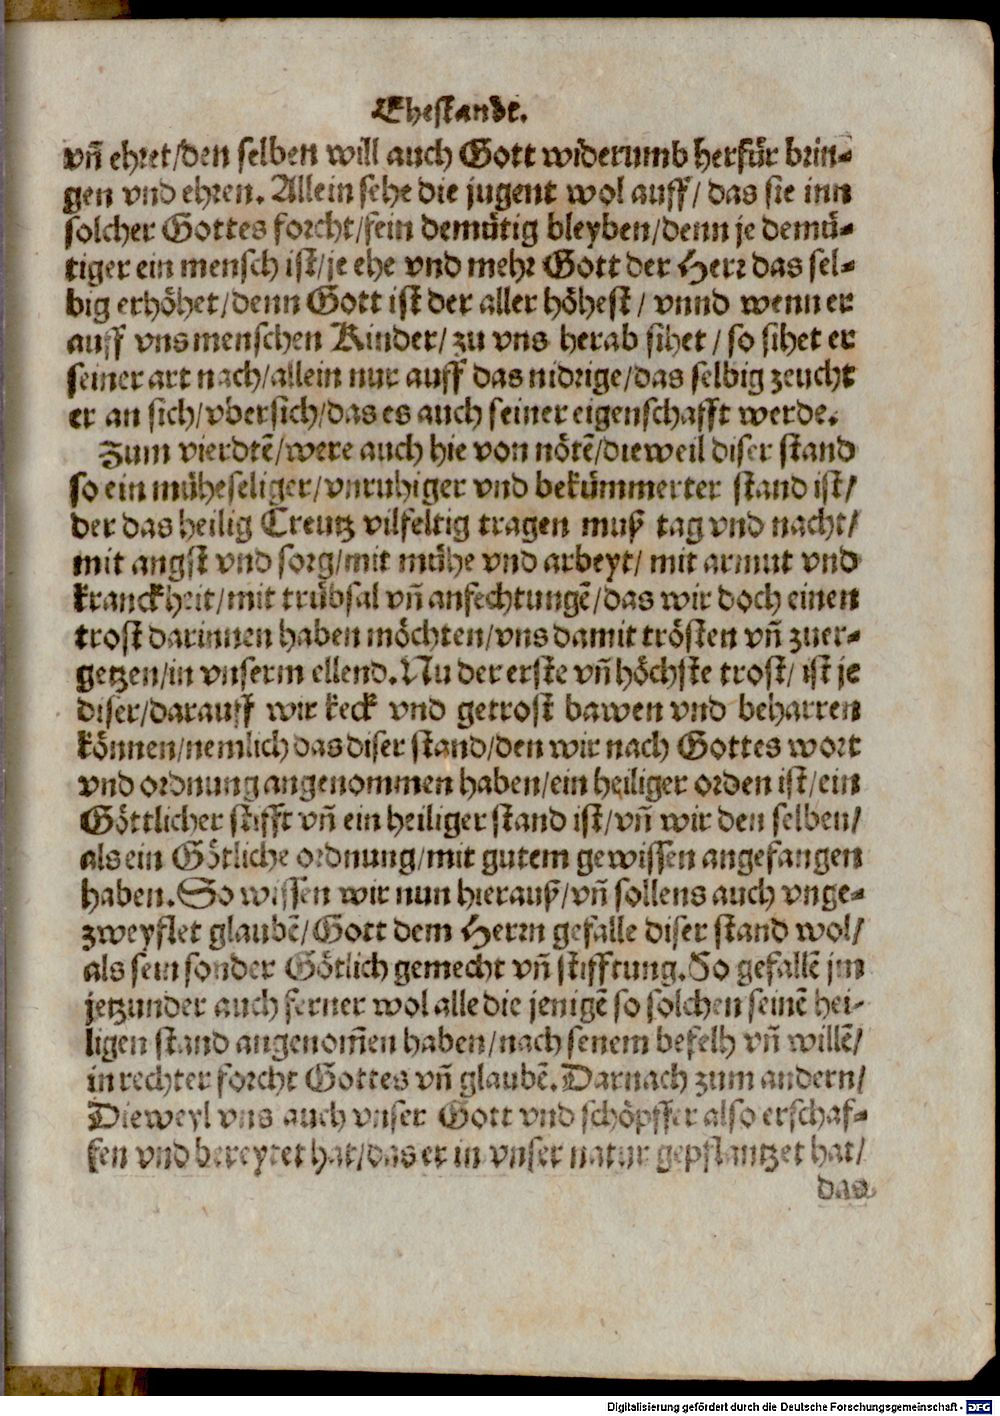 Ehestande.
vn̄ ehret/den selben will auch Gott widerumb herfür brin-
gen vnd ehren. Allein sehe die jugent wol auff/ das sie inn
solcher Gottes forcht/fein demütig bleyben/denn je demü-
tiger ein mensch ist/je ehe vnd mehr Gott der Herr das sel-
big erhöhet/denn Gott ist der aller höhest/ vnnd wenn er
auff vns menschen Kinder/ zu vns herab sihet/ so sihet er
seiner art nach/allein nur auff das nidrige/das selbig zeucht
er an sich/vbersich/das es auch seiner eigenschafft werde.
Zum vierdtē/were auch hie von nötē/dieweil diser stand
so ein müheseliger/vnruhiger vnd bekümmerter stand ist/
der das heilig Creutz vilfeltig tragen muß tag vnd nacht/
mit angst vnd sorg/mit mühe vnd arbeyt/ mit armut vnd
kranckheit/mit trübsal vn̄ anfechtungē/das wir doch einen
trost darinnen haben möchten/vns damit trösten vn̄ zuer-
getzen/in vnserm ellend. Nu der erste vn̄ höchste trost/ ist je
diser/darauff wir keck vnd getrost bawen vnd beharren
können/nemlich das diser stand/den wir nach Gottes wort
vnd ordnung angenommen haben/ein heiliger orden ist/ein
Göttlicher stifft vn̄ ein heiliger stand ist/vn̄ wir den selben/
als ein Götliche ordnung/mit gutem gewissen angefangen
haben. So wissen wir nun hierauß/vn̄ sollens auch vnge-
zweyflet glaubē/Gott dem Herrn gefalle diser stand wol/
als sein sonder Götlich gemecht vn̄ stifftung. So gefallē jm
jetzunder auch ferner wol alle die jenigē so solchen seinē hei-
ligen stand angenom̄en haben/nach senem befelh vn̄ willē/
in rechter forcht Gottes vn̄ glaubē. Darnach zum andern/
Dieweyl vns auch vnser Gott vnd schöpffer also erschaf-
fen vnd bereytet hat/das er in vnser natur gepflantzet hat/
das
Digitalisierung gefördert durch die Deutsche Forschungsgemeinschaft - DFG